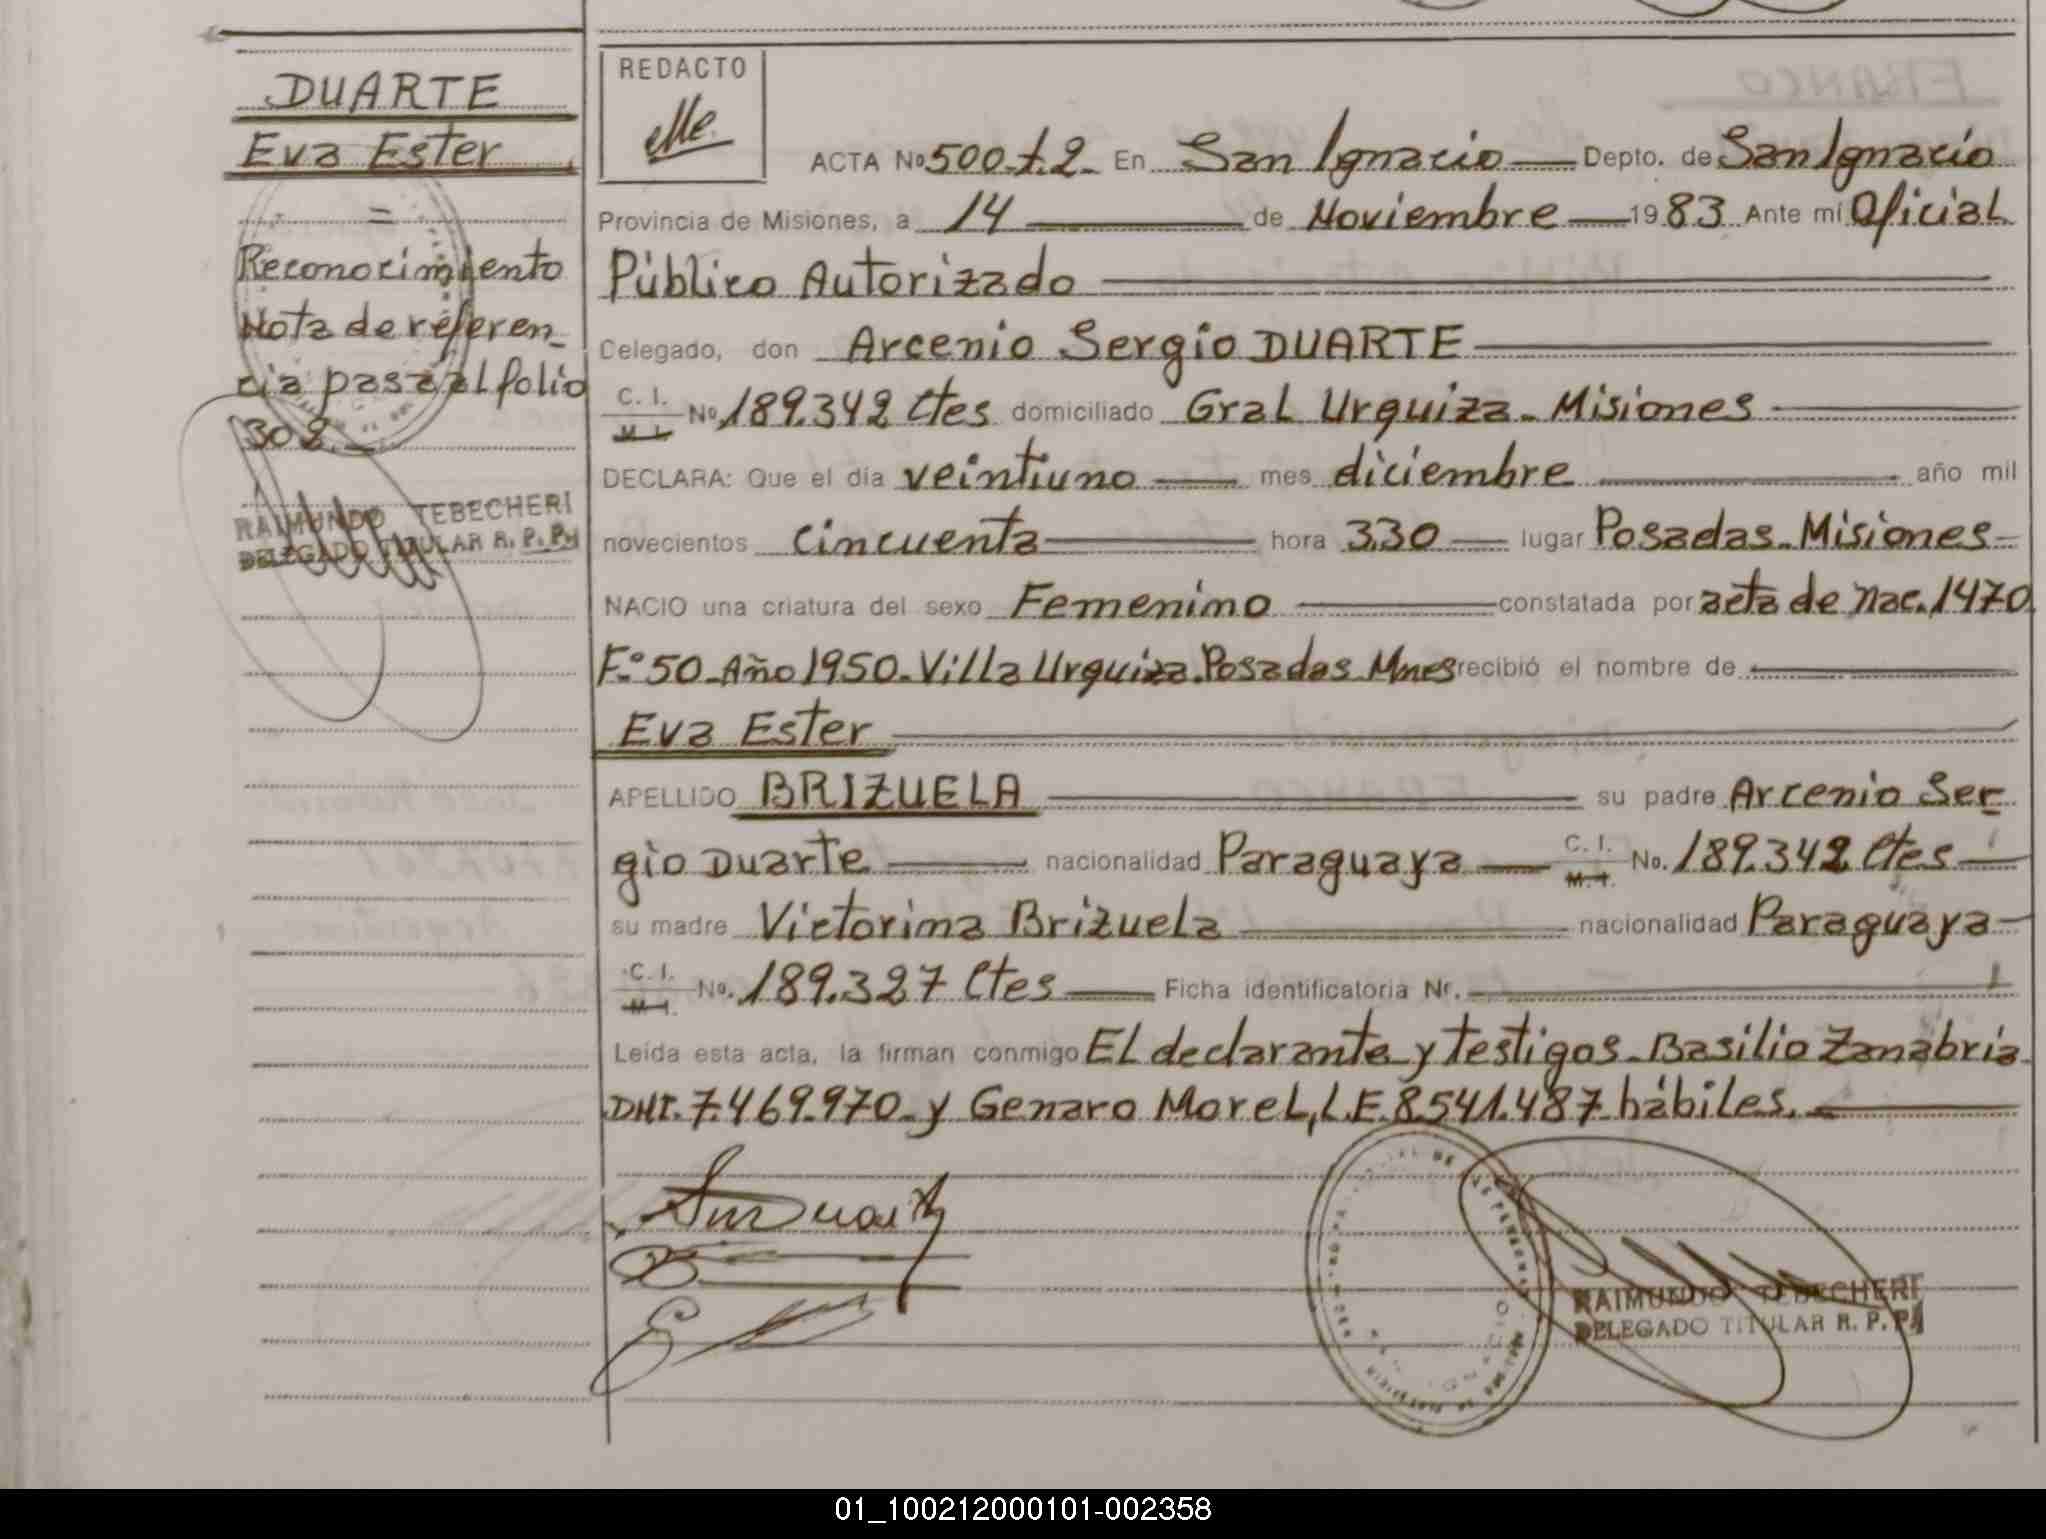 DUARTE
Eva Ester
=
Reconocimiento
Nota de referen_
cia pasa al folio
302._
RAIMUNDO TEBECHERI
DELEGADO TITULAR R. P. P.
REDACTO
ACTA No 500.t.2_ En San Ignacio Depto. de San Ignacio
Provincia de Misiones, a 14 de Noviembre 1983 Ante mí Oficial
Público Autorizado
Celegado, don Arcenio Sergio DUARTE
C. I.
M. I.
No. 189.342 Ctes domiciliado Gral Urquiza_ Misiones
DECLARA: Que el día veintiuno mes diciembre año mil
novecientos cincuenta hora 3.30 lugar Posadas_Misiones
NACIO una criatura del sexo Femenino constatada por acta de nac. 1470
F.° 50_Año 1950_Villa Urquiza_Posadas_Mnes recibió el nombre de
Eva Ester
APELLIDO BRIZUELA su padre Arcenio Ser_
gio Duarte nacionalidad Paraguaya C. I. M. I. No. 189.342 Ctes
su madre Victorina Brizuela nacionalidad Paraguaya
C. I.
M. I.
No. 189.327 Ctes Ficha identificatoria Nr.
Leída esta acta, la firman conmigo El declarante y testigos_Basilio Zanabria
DNI. 7.469.970_y Genaro Morel, L.E. 8.541.487 hábiles._
RAIMUNDO TEBECHERI
DELEGADO TITULAR R. P. P.
01_100212000101-002358